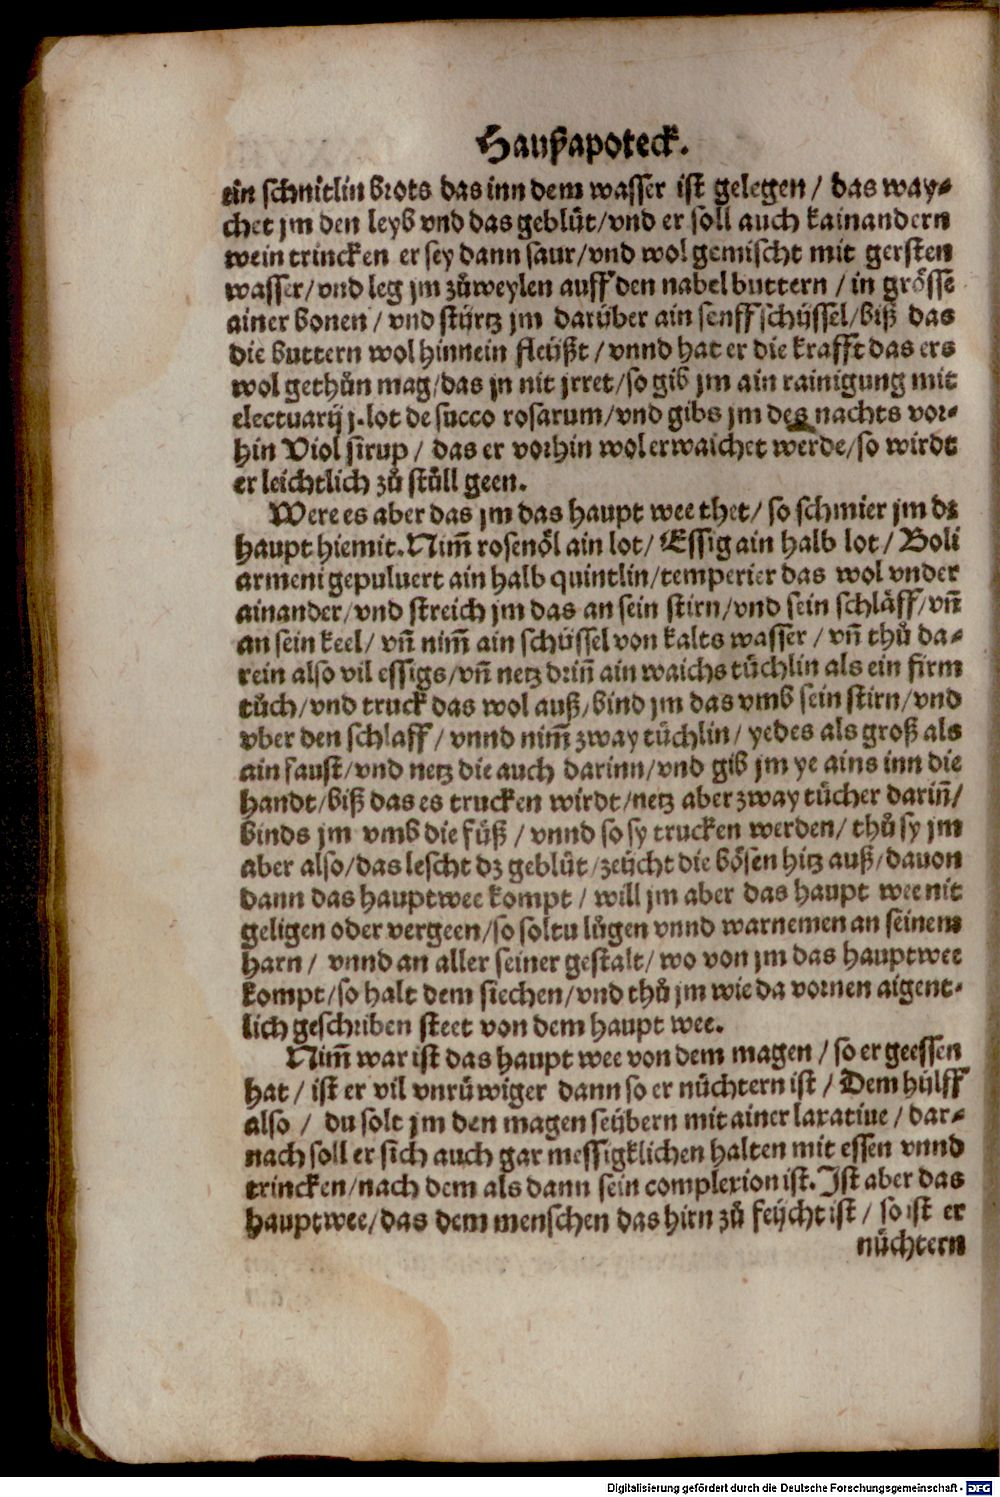 Haußapoteck.
ein schnitlin brots das inn dem wasser ist gelegen / das way-
chet jm den leyb vnd das geblůt/vnd er soll auch kainandern
wein trincken er sey dann saur/vnd wol gemischt mit gersten
wasser/vnd leg jm zůweylen auff den nabel buttern / in grösse
ainer bonen / vnd stürtz jm darüber ain senff schüssel/biß das
die buttern wol hinnein fleüßt / vnnd hat er die krafft das ers
wol gethůn mag/das jn nit jrret/so gib jm ain rainigung mit
electuarij j. lot de succo rosarum/vnd gibs jm des nachts vor-
hin Viol sirup / das er vorhin wol erwaichet werde/so wirdt
er leichtlich zů stůll geen.
Were es aber das jm das haupt wee thet/ so schmier jm dz
haupt hiemit. Nim̃ rosenöl ain lot/ Essig ain halb lot / Boli
armeni gepuluert ain halb quintlin/temperier das wol vnder
ainander/vnd streich jm das an sein stirn/vnd sein schläff/vñ
an sein keel/ vñ nim̃ ain schüssel von kalts wasser / vñ thů da-
rein also vil essigs/vñ netz driñ ain waichs tüchlin als ein firm
tůch/vnd truck das wol auß/bind jm das vmb sein stirn/vnd
vber den schlaff / vnnd nim̃ zway tüchlin / yedes als groß als
ain faust/vnd netz die auch darinn/vnd gib jm ye ains inn die
handt/biß das es trucken wirdt/netz aber zway tücher dariñ/
binds jm vmb die füß / vnnd so sy trucken werden/ thů sy jm
aber also/das lescht dz geblůt/zeücht die bösen hitz auß/dauon
dann das hauptwee kompt / will jm aber das haupt wee nit
geligen oder vergeen/so soltu lůgen vnnd warnemen an seinem
harn / vnnd an aller seiner gestalt/ wo von jm das hauptwee
kompt/so halt dem siechen/vnd thů jm wie da vornen aigent-
lich geschriben steet von dem haupt wee.
Nim̃ war ist das haupt wee von dem magen / so er geessen
hat / ist er vil vnrüwiger dann so er nüchtern ist / Dem hülff
also / du solt jm den magen seübern mit ainer laxatiue / dar-
nach soll er sich auch gar messigklichen halten mit essen vnnd
trincken/nach dem als dann sein complexion ist. Ist aber das
hauptwee/das dem menschen das hirn zů feücht ist / so ist er
nüchtern
Digitalisierung gefördert durch die Deutsche Forschungsgemeinschaft - DFG